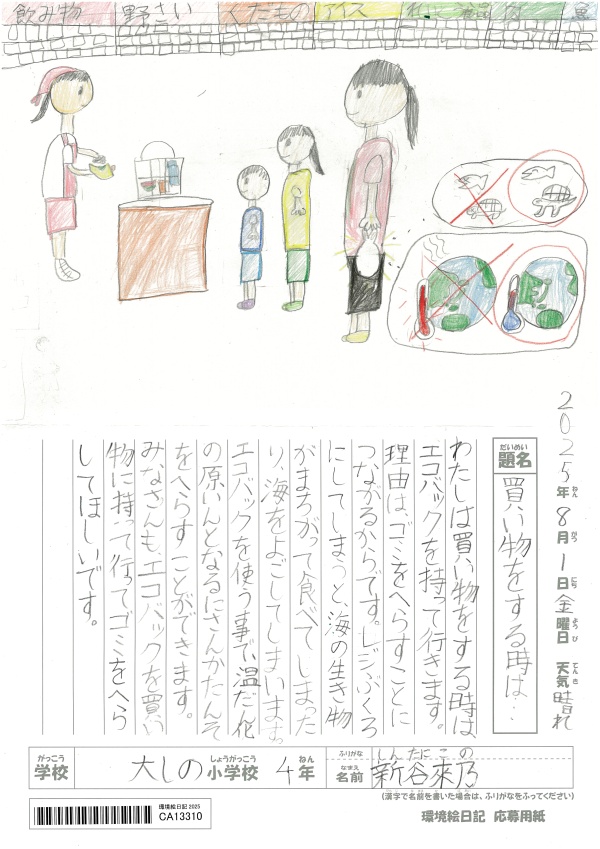 飲み物
野さい
くだもの
アイス
肉
魚
2025年8月1日金曜日 天気晴れ
ねん がつ にち ようび てんき
だいめい
題名 買い物をする時は…
わたしは買い物をする時は
エコバックを持って行きます。
理由は、ゴミをへらすことに
つながるからです。レジぶくろ
にしてしまうと、海の生き物
がまちがって食べてしまった
り、海をよごしてしまいます。
エコバックを使う事で、温だん化
の原いんとなるにさんかたんそ
をへらすことができます。
みなさんも、エコバックを買い
物に持って行ってゴミをへら
してほしいです。
がっこう しょうがっこう ねん
学校 大しの小学校 4年
ふりがな しんたに この
なまえ
名前 新谷來乃
(漢字で名前を書いた場合は、ふりがなをふってください)
環境絵日記 2025
CA13310
環境絵日記 応募用紙